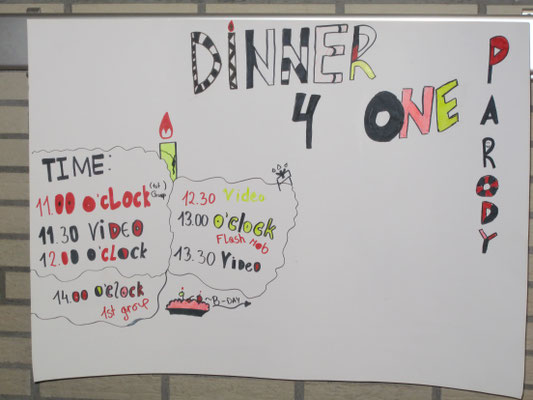 DINNER
4 ONE
PARODY
TIME:
11.00 O'CLOCK (1st Group
11.30 VIDEO
12.00 O'CLOCK
14.00 O'CLOCK
1st group
12.30 Video
13.00 O'CLOCK
Flash Mob
13.30 VIDEO
B-DAY